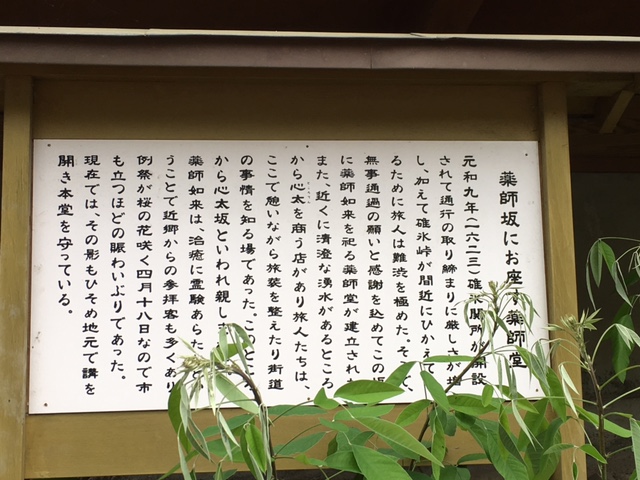 薬師坂にお座す薬師堂
元和九年(一六二三)碓氷関所が開設
されて通行の取り締まりに厳しさが増
し、加えて碓氷峠が間近にひかえて
るために旅人は難渋を極めた。そ
無事通過の願いと感謝を込めてこの坂
に薬師如来を祀る薬師堂が建立され
また、近くに清澄な湧水があるところ
から心太を商う店があり旅人たちは、
ここで憩いながら旅装を整えたり街道
の事情を知る場であった。このと
から心太坂といわれ親し
薬師如来は、治癒に霊験あらた
うことで近郷からの参拝客も多くあり
例祭が桜の花咲く四月十八日なので市
も立つほどの賑わいぶりであった。
現在では、その影もひそめ地元で講を
開き本堂を守っている。